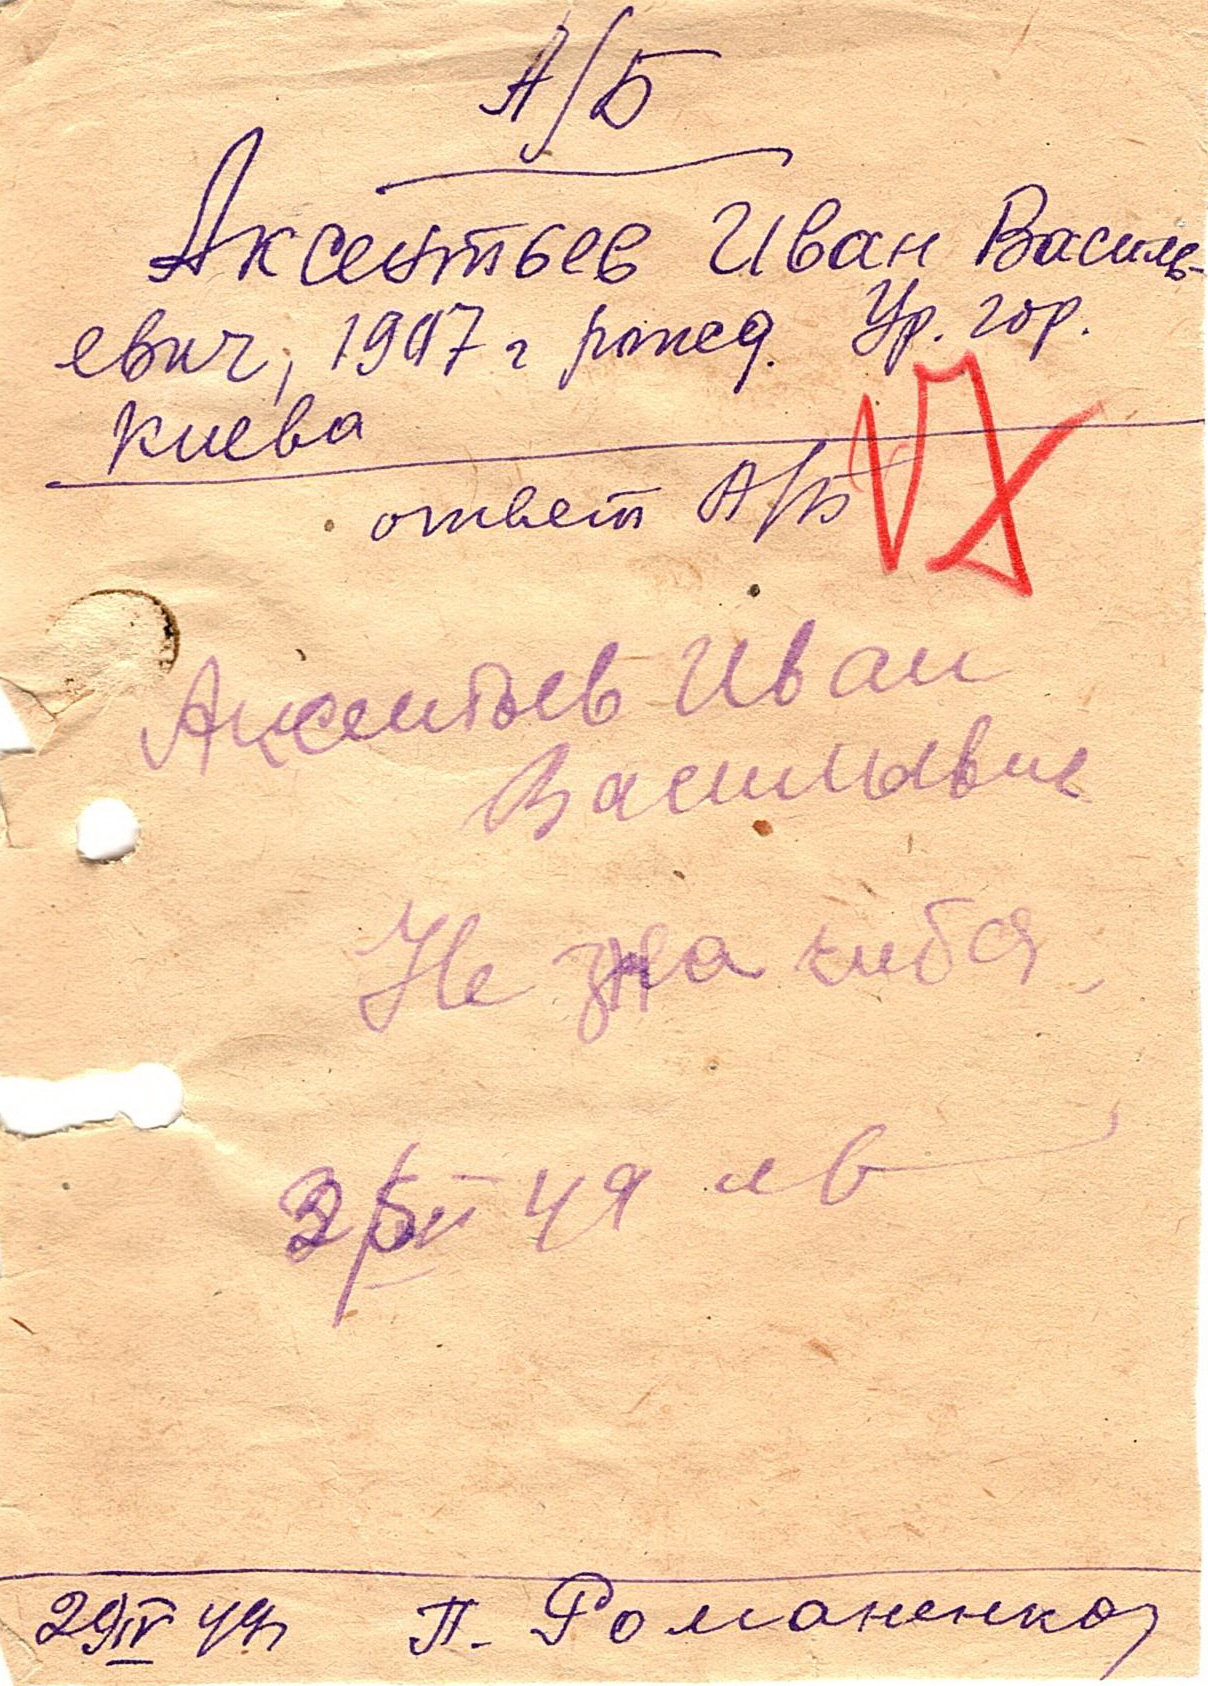 А/Б
Аксентьев Иван Василь-
евич, 1907 г рожд. Ур. гор.
Киева
ответ А/Б
Аксентьев Иван
Васильевич
Не
49
29 IV 49г П. Романенко